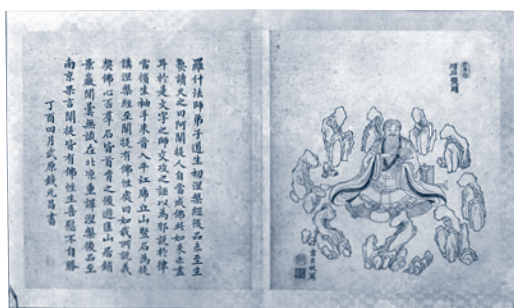 羅什法師弟子道生初涅槃經後品未至生
熟讀久之曰阿闡提人自當成佛此如來未盡
耳於是文字之師交攻之誣以為邪說於律
當擯生袖手來吾入平江虎丘山豎石為徒
講涅槃經至闡提有佛性處曰如我所說義
契佛心否羣石皆首肯之後遊匡山居銷
景巖聞曇無讖在北涼重譯涅槃後品至
南京果言闡提皆有佛性生喜慰不自勝
丁酉四月武原錢元昌書